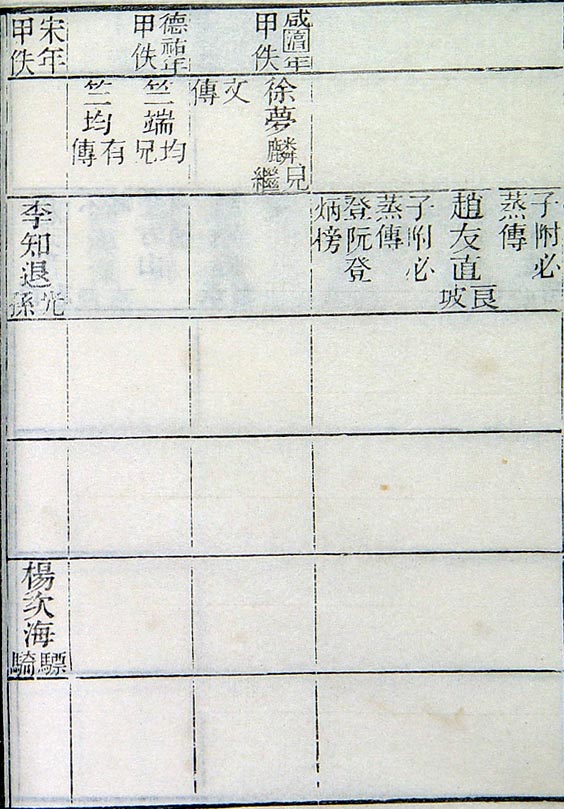 咸淳年
甲佚
德祐年
甲佚
宋年
甲佚
徐夢麟兄繼
文
傳
竺端均兄
竺均有傳
子附必
蒸傳
趙友直良坡
子附必
蒸傳
登阮登
炳榜
李知退光孫
楊次海驃騎